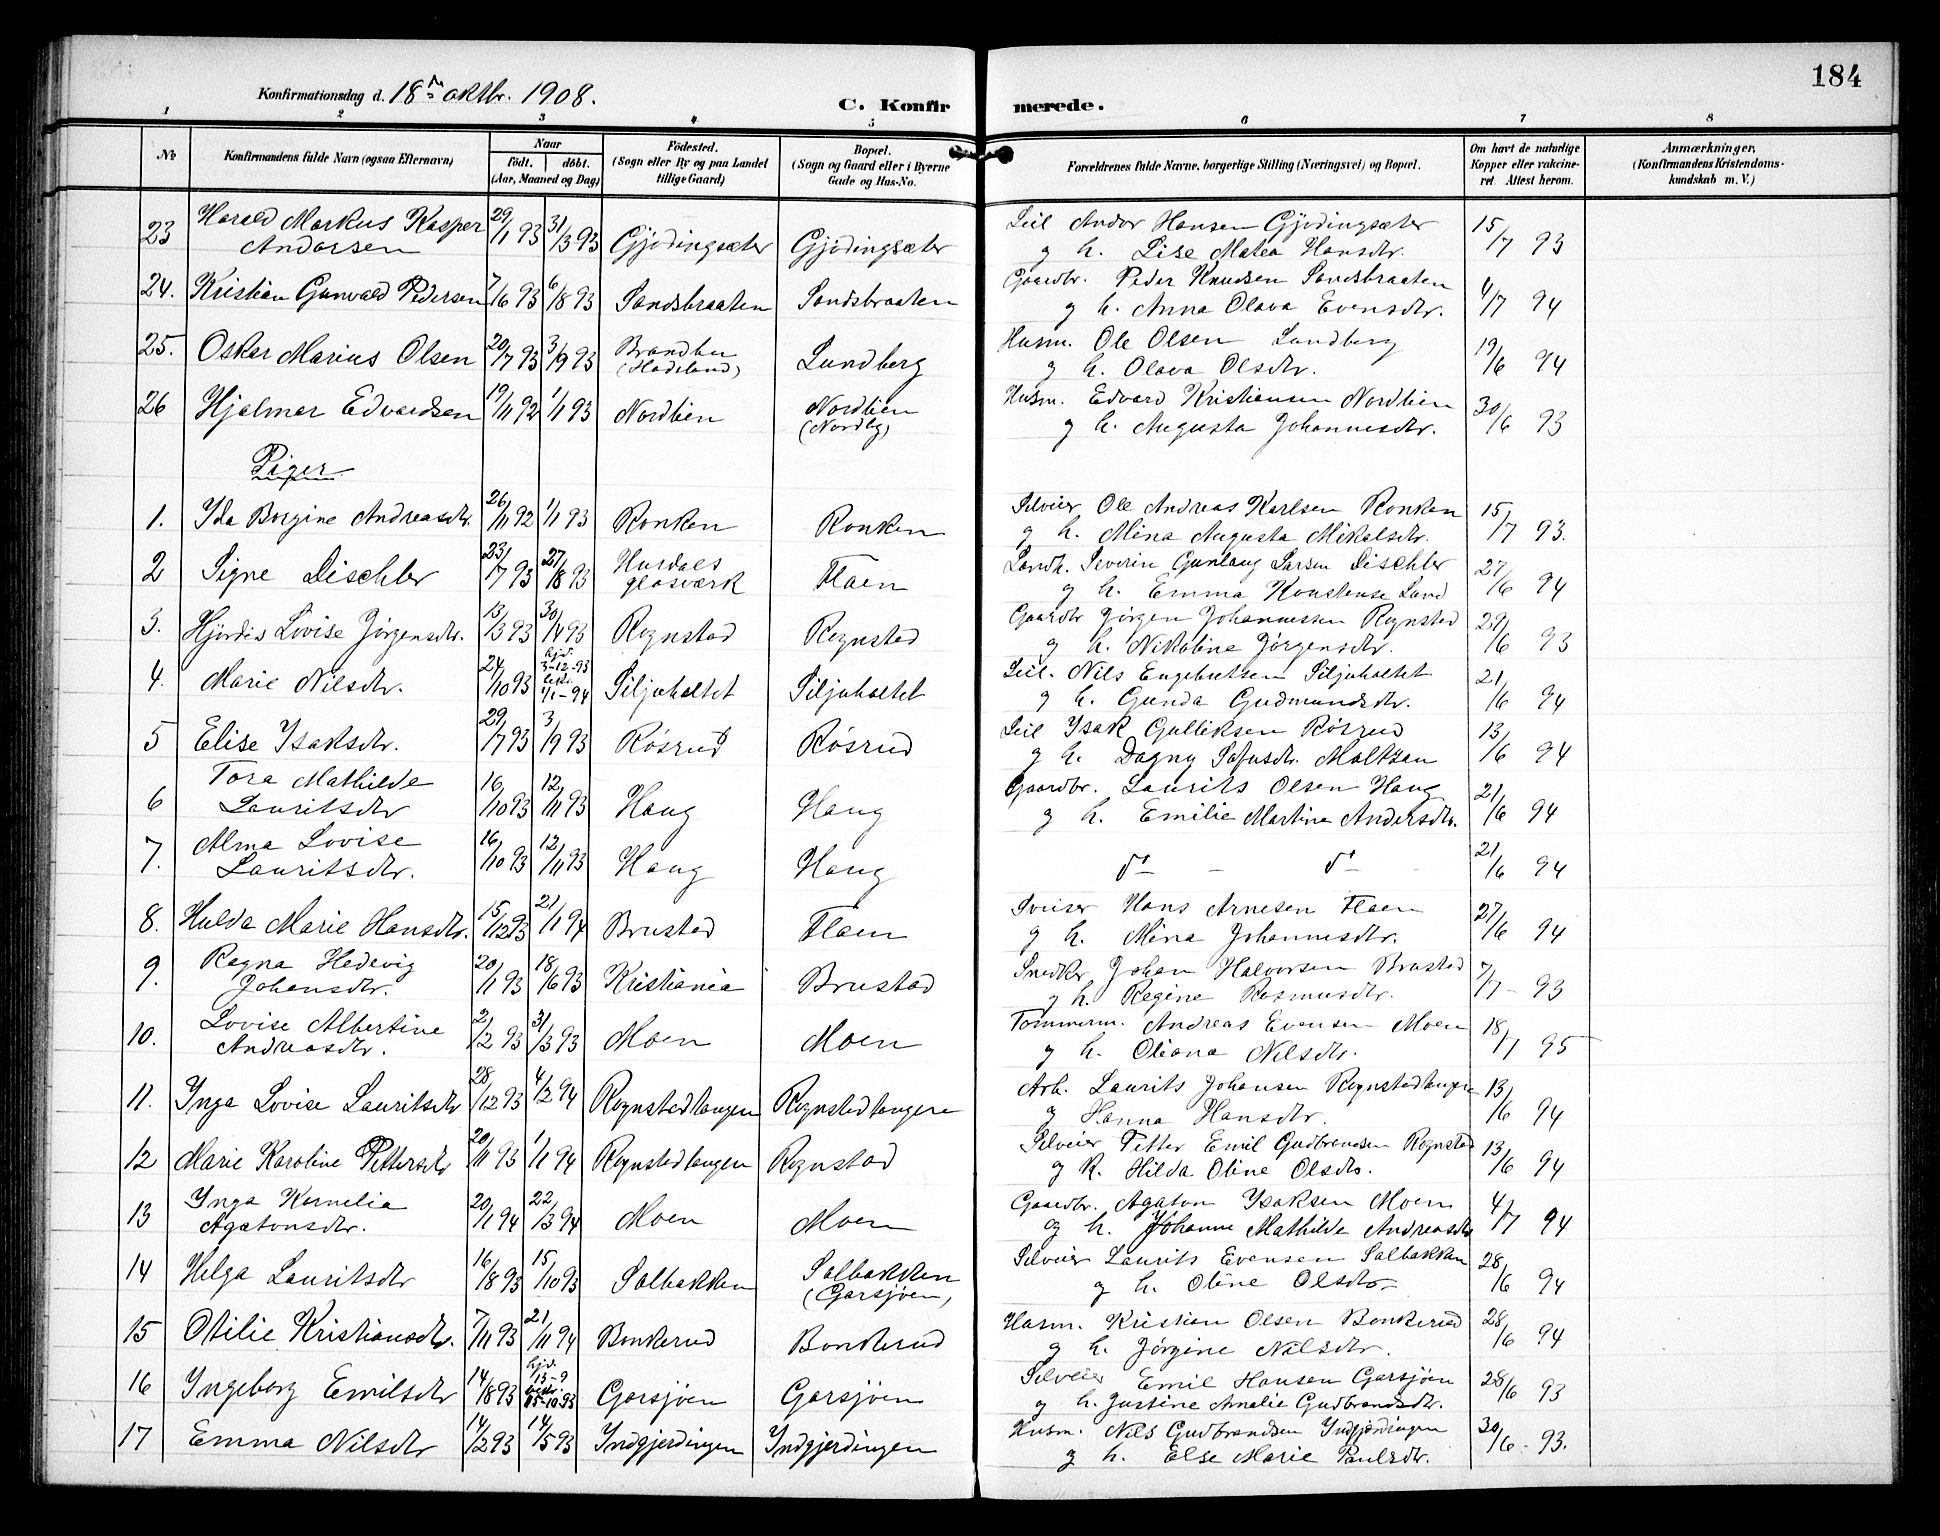 184
Konfirmationsdag d. 18de oktbr. 1908.
C. Konfirmerede.
1 2 3 4 5 6 7 8
No
Konfirmandens fulde Navn (ogsaa Efternavn)
Naar
født. døbt.
(Aar, Maaned og Dag)
Fødested.
(Sogn eller By og paa Landet
tillige Gaard)
Bopæl.
(Sogn og Gaard eller i Byerne
Gade og Hus-No.
Forældrenes fulde Navne, borgerlige Stilling (Næringsvei) og Bopæl.
Om havt de naturlige
Kopper eller vakcineret.
Attest herom.
Anmærkninger.
(Konfirmandens Kristendomskundskab
m. V.)
23 Harald Markus Kasper Andorsen 29/1 93 31/3 93 Gjødingsæter Gjødingsæter Leil Andor Hansen Gjødingsæter 15/7 93
g h. Lise Matea Hansdtr.
24. Kristian Gunvald Pedersen 7/6 93 6/8 93 Sandsbraaten Sandsbraaten Gaardbr. Peder Knudsen Sandsbraaten 4/7 94
g h. Anna Olava Evensdtr.
25. Oskar Marius Olsen 20/7 93 3/9 93 Brandbu (Hadeland) Lundberg Husm. Ole Olsen Lundberg 19/6 94
g h. Olava Olsdtr.
26 Hjalmar Edvardsen 19/11 92 1/1 93 Nordlien Nordlien (Nordby) Husm. Edvard Kristiansen Nordlien 30/6 93
g h. Augusta Johannesdtr.
Piger
1. Ida Borgine Andreasdtr. 26/11 92 1/1 93 Ronken Ronken Selveier Ole Andreas Karlsen Ronken 15/7 93.
g h. Mina Augusta Mikalsdtr.
2 Signe Dischler 23/7 93 27/8 93 Hurdals glasværk Flaen Landh. Severin Gunlaug Larsen Dischler 27/6 94
g h. Emma Konstanse Lund
3. Hjørdis Lovise Jørgensdtr. 13/3 93 30/4 93 Rognstad Rognstad Gaardbr Jørgen Johannessen Rognstad 29/6 93
g h. Nikoline Jørgensdtr.
4. Marie Nilsdtr. 24/10 93 hjd. 3-12-93 1/1-94 Siljuholtet Siljuholtet Leil. Nils Engebretsen Siljuholtet 21/6 94
g h. Gunda Gudmundsdtr.
5 Elise Isaksdtr. 29/7 93 3/9 93 Røsrud Røsrud Leil Isak Gulliksen Røsrud 13/6 94
g h. Dagny Sofusdtr. Moltzau
6 Tora Mathilde Lauritsdtr 16/10 93 12/11 93 Haug Haug Gaardbr. Laurits Olsen Haug 21/6 94
g h. Emilie Martine Andersdtr.
7. Alma Lovise Lauritsdtr. 16/10 93 12/11 93 Haug Haug do - do - 21/6 94
8. Hulda Marie Hansdtr. 15/12 93 21/1 94 Brustad Flaen Sveiser Hans Arnesen Flaen 27/6 94
g h. Mina Johannesdtr.
9. Ragna Hedevig Johansdtr. 20/1 93 18/6 93 Kristiania Brustad Snedker Johan Halvorsen Brustad 7/7 - 93
g h. Regine Rasmusdtr.
10. Lovise Albertine Andreasdtr. 2/2 93 31/3 93 Moen Moen Tømmerm. Andreas Evensen Moen 18/7 95
g h. Oliana Nilsdtr.
11. Inga Lovise Lauritsdtr 28/12 93 4/2 94 Rognstadtangen Rognstadtangen Arb. Laurits Johansen Rognstadtangen 13/6 94
g Hanna Hansdtr.
12 Marie Karoline Pettersdtr 20/11 93 1/1 94 Rognstadtangen Rognstad Selveier Petter Emil Gudbrandsen Rognstad 13/6 94
g h. Hilda Oline Olsdtr.
13 Inga Kornelia Agatonsdtr. 20/1 94 22/3 94 Moen Moen Gaardbr. Agaton Isaksen Moen 4/7 94
og h. Johanne Mathilde Andreasdtr
14 Helga Lauritsdtr 16/8 93 15/10 93 Solbakken Solbakken (Garsjøen) Selveier Laurits Evensen Solbakken 28/6 94
g h. Oline Olsdtr
15 Otilie Kristiansdtr. 7/11 93 21/11 94 Bonkerud Bonkerud Husm. Kristian Olsen Bonkerud 28/6 94
g h. Jørgine Nilsdtr.
16 Ingeborg Emilsdtr 14/8 93 hjd. 13-9 15-10 93 Garsjøen Garsjøen Selveier Emil Hansen Garsjøen 28/6 93
g h. Justine Amalie Gudbrandsdtr.
17 Emma Nilsdtr 14/2 93 14/5 93 Indgjerdingen Indgjerdingen Husm. Nils Gudbrandsen Indgjerdingen 30/6 - 93.
g h. Else Marie Paulsdtr.